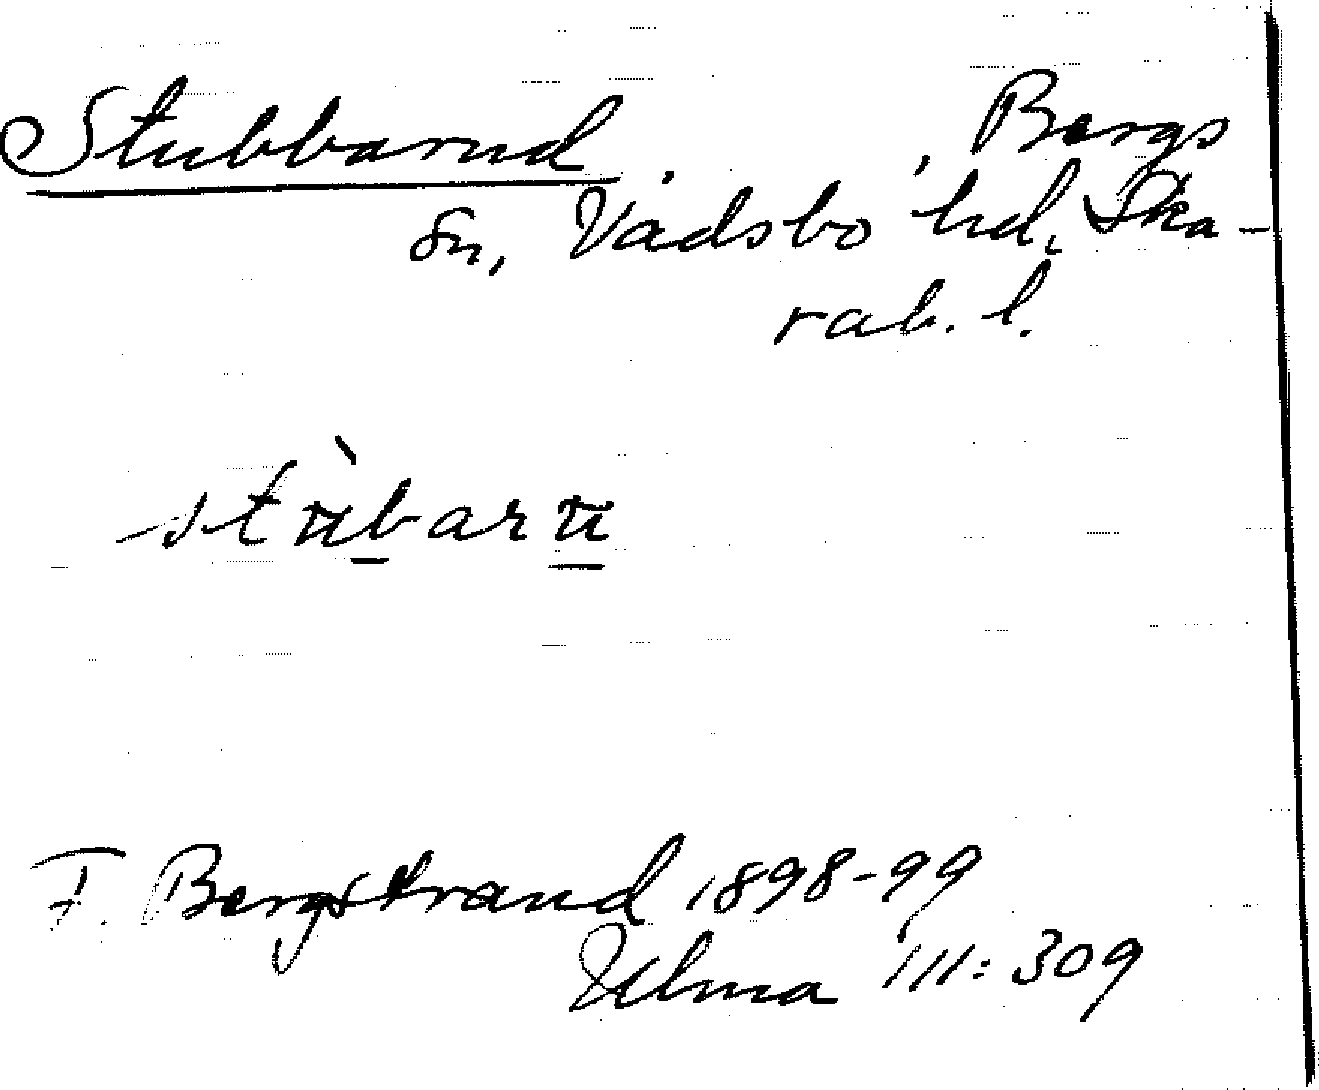 Stubbarud , Bergs
sn, Vadsbo hd, Ska-
rab. l.
stùbaru
F. Bergstrand 1898-99
Ulma 111:309